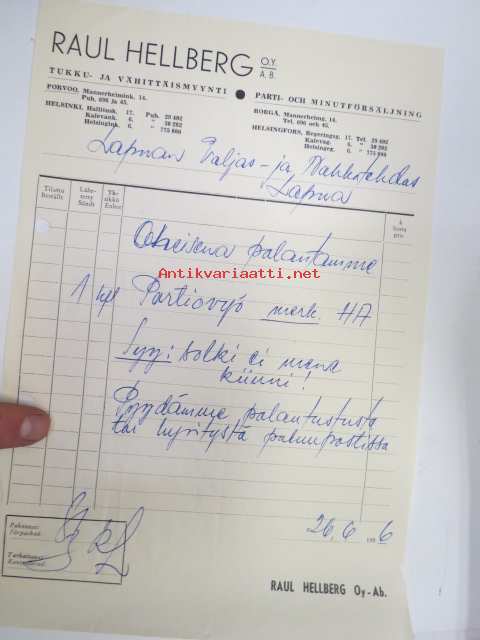 RAUL HELLBERG O.Y. A.B.
TUKKU- JA VÄHITTÄISMYYNTI ● PARTI- OCH MINUTFÖRSÄLJNING
PORVOO. Mannerheimink. 14.
Puh. 696 ja 45.
HELSINKI. Hallitusk. 17. Puh. 29 492
Kalevank. 6. " 30 262
Helsingink. 6. " 775 800
BORGÅ. Mannerheimg. 14.
Tel. 696 och 45.
HELSINGFORS. Regeringsg. 17. Tel. 29 492
Kalevag. 6. " 30 262
Helsingeg. 6. " 775 800
Lapuan Valjas- ja Nahkatehdas
Lapua
Tilattu
Beställt
Lähetetty
Sändt
Yksikkö
Enhet
á
hinta
pris
Oheisena palautamme
Antikvariaatti.net
1 kpl Partiovyö merk. HA
Syy: solki ei mene
kiinni!
Pyydämme palautusta
tai hyvitystä paluupostissa
26.6 195 6
Pakannut:
Förpackat:
Tarkastanut:
RAUL HELLBERG Oy-Ab.